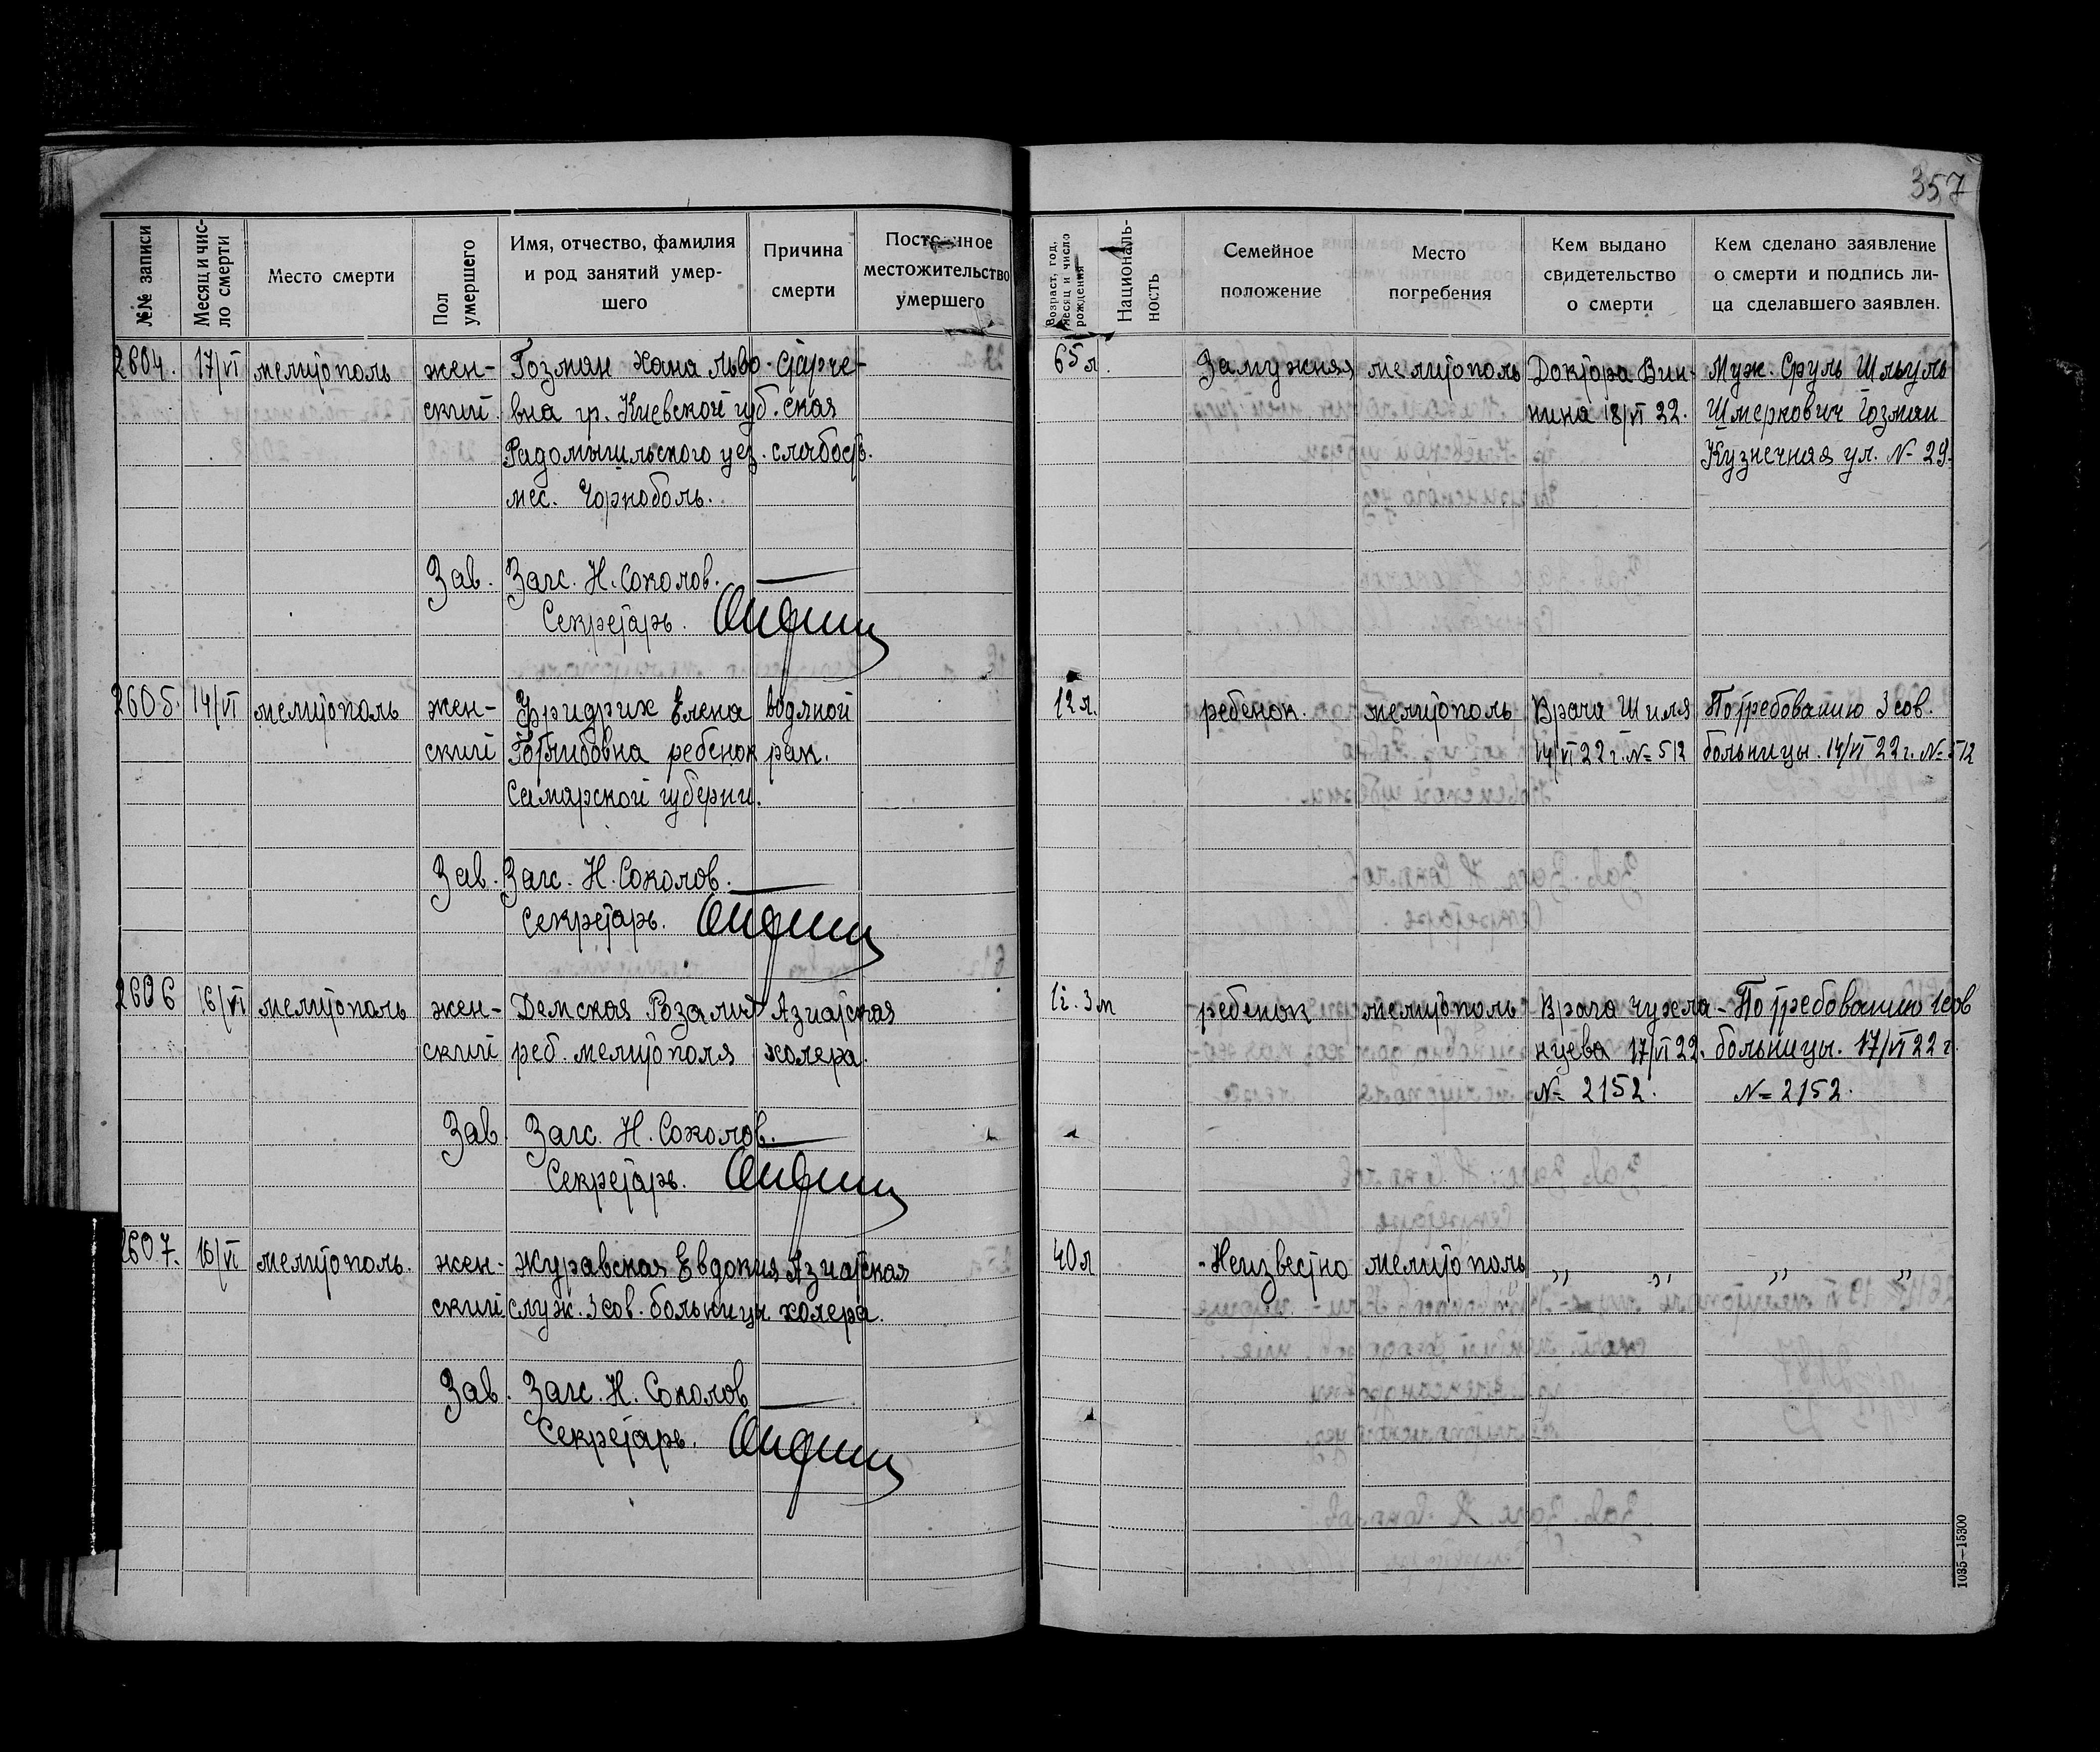 357
№№ записи
Месяц и число смерти
Место смерти
Пол умершего
Имя, отчество, фамилия
и род занятий умер-
шего
Причина
смерти
Постоянное
местожительство
умершего
Возраст, год,
месяц и число
рождения
Националь-
ность
Семейное
положение
Место
погребения
Кем выдано
свидетельство
о смерти
Кем сделано заявление
о смерти и подпись ли-
ца сделавшего заявлен.
2604. 17/VI мелитополь жен- Гозман Хана Льво- старче- 65 л. Замужняя мелитополь Доктора Вин- Муж. Сруль Шльуль
ский вна гр. Киевской губ. ская нина 18/VI 22. Шмеркович Гозман
Радомышльского уез. слабость. Кузнечная ул. № 29.
мес. Чорноболь.
Зав. Загс. Н. Соколов.
Секретарь.
2605. 14/VI мелитополь жен- Фридрих Елена водяной 12 л. ребенок. мелитополь Врача Шиля По требованию 3 сов.
ский Готлибовна ребенок рак. 14/VI 22 г. № 512 больницы. 14/VI 22 г. № 512
Самарской губерни.
Зав. Загс. Н. Соколов.
Секретарь.
2606 16/VI мелитополь жен- Демская Розалия Азиатская 1 г. 3 м ребенок мелитополь Врача Чухла- По требованию 1 сов
ский реб. мелитополя холера. нцева 17/VI 22. больницы. 17/VI 22 г.
№ 2152. № 2152.
Зав. Загс. Н. Соколов.
Секретарь.
2607. 16/VI мелитополь. жен- Журавская Евдокия Азиатская 40 л Неизвестно мелитополь „ „ „ „
ский служ. 3 сов. больницы холера.
Зав. Загс. Н. Соколов
Секретарь.
1035—15300